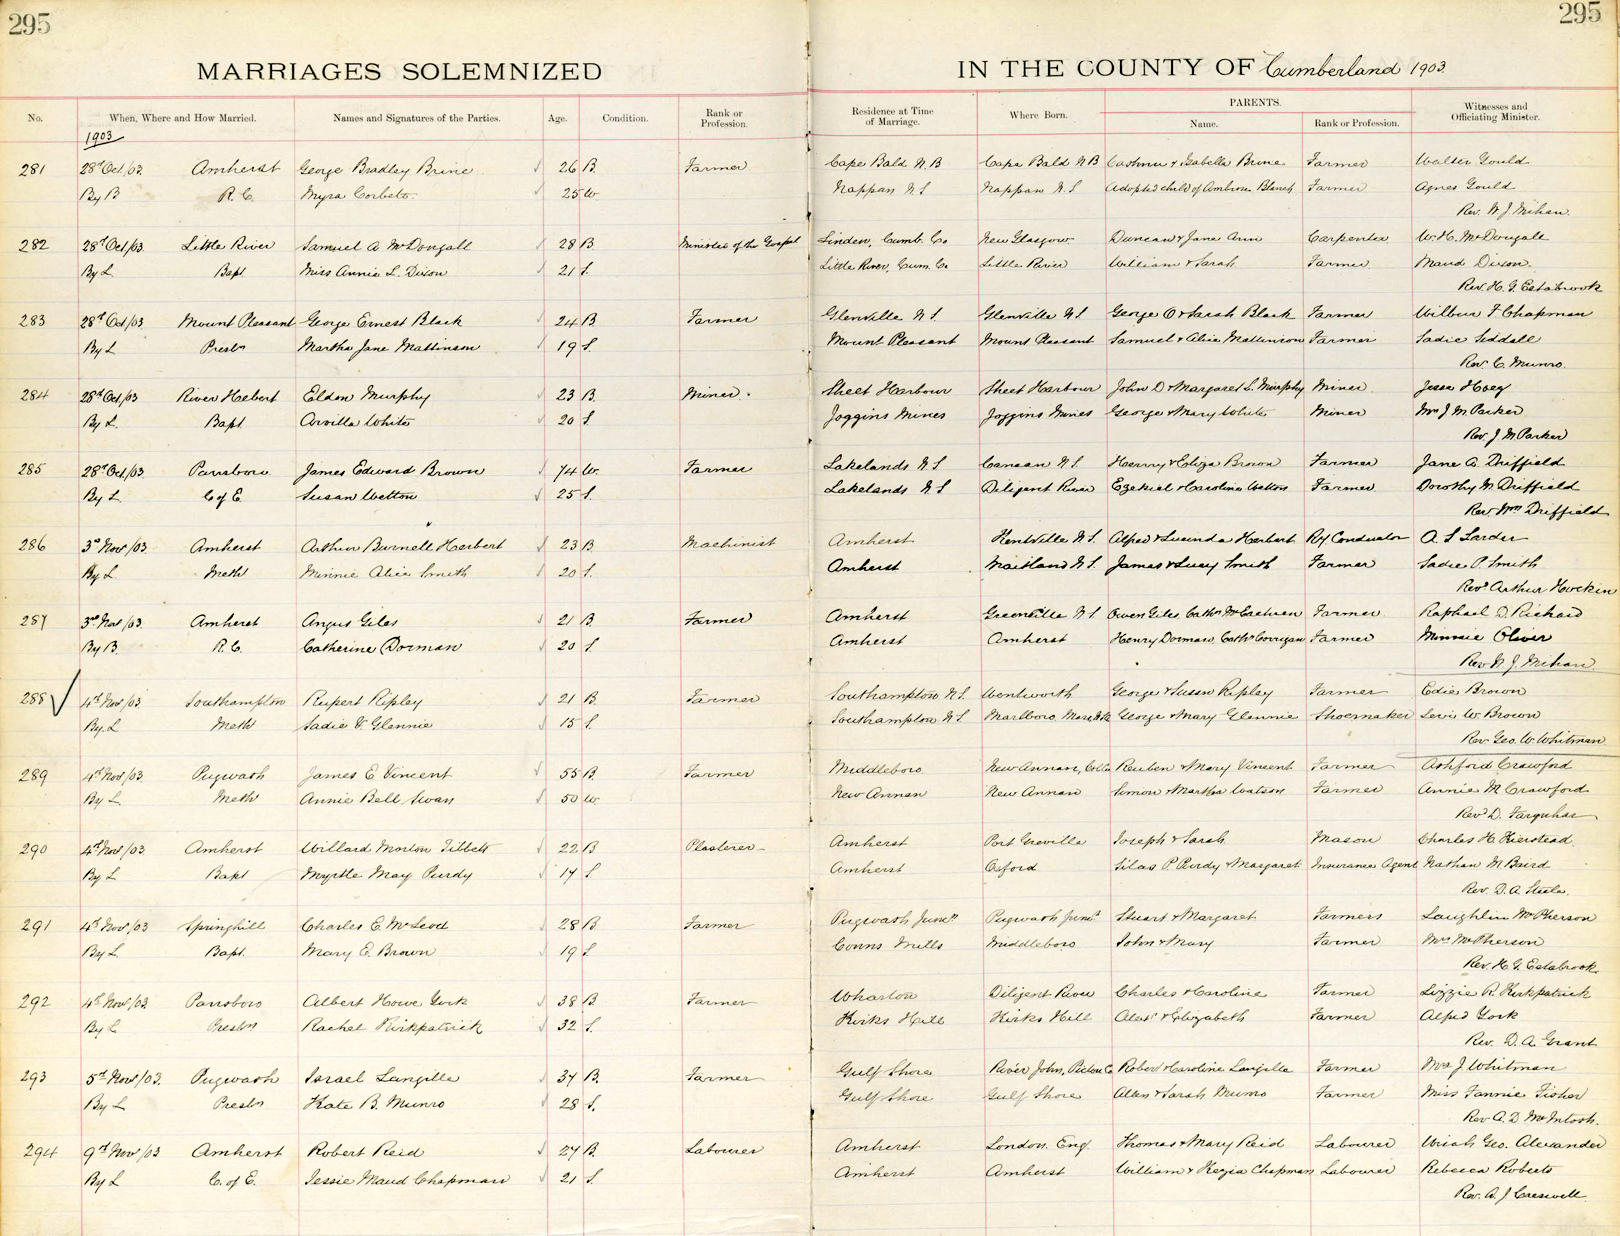 295
295
MARRIAGES SOLEMNIZED
IN THE COUNTY OF Cumberland 1903
No. When, Where and How Married. Names and Signatures of the Parties. Age. Condition. Rank or Profession. Residence at Time of Marriage. Where Born. PARENTS. Name. Rank or Profession. Witnesses and Officiating Minister.
1903
281 28th Oct/03 Amherst George Bradley Brine 26 B. Farmer Cape Bald N.B Cape Bald N B & Isabella Brine Farmer Walter Gould
By B R. C. Myra Corbett 25 W Nappan N.S Nappan N.S Adopted child of Ambrose Blanch Farmer Agnes Gould
Rev. W J Mihan
282 28th Oct/03 Little River Samuel A McDougall 28 B. Minister of the Gospel Linden, Cumb. Co New Glasgow Duncan & Jane Ann Carpenter W. H. McDougall
By L Bapt Miss Annie L. Dixon 21 S. Little River, Cum. Co Little River William & Sarah Farmer Maud Dixon
Rev. H. G. Estabrook
283 28th Oct/03 Mount Pleasant George Ernest Black 24 B. Farmer Glenville N S. Glenville N S George O & Sarah Black Farmer Wilbur F Chapman
By L Presbn Martha Jane Mattinson 19 S. Mount Pleasant Mount Pleasant Samuel & Alice Mattinson Farmer Sadie Siddall
Rev. C. Munro
284 28th Oct/03 River Hebert Elden Murphy 23 B. Miner. Sheet Harbour Sheet Harbour John D & Margaret S. Murphy Miner Jesse Hoeg
By L. Bapt Arvilla White 20 S. Joggins Mines Joggins Mines George & Mary White Miner Mrs J M Parker
Rev. J M Parker
285 28th Oct/03 Parrsboro James Edward Brown 74 W. Farmer Lakelands N S Canaan N S. Henry & Eliza Brown Farmer Jane A. Driffield
By L. C of E. Susan Welton 25 S. Lakelands N S Diligent River Ezekiel & Caroline Welton Farmer Dorothy M. Driffield
Rev. Wm Driffield
286 3rd Nov/03 Amherst Arthur Burnell Herbert 23 B. Machinist Amherst Kentville N.S. Alfred & Lucinda Herbert Ry Conductor A. S Larder
By L Meth Minnie Alice Smith 20 S. Amherst Maitland N.S. James & Lucy Smith Farmer Sadie P. Smith
Revd Arthur Hockin
287 3rd Nov/03 Amherst Angus Giles 21 B. Farmer Amherst Greenville N S. Owen Giles Cathn McEachren Farmer Raphael D. Richard
By B. R. C. Catherine Dorman 20 S. Amherst Amherst Henry Dorman, Cathn Corrigan Farmer Minnie Oliver
Rev W J. Mihan
288 4th Nov/03 Southampton Rupert Ripley 21 B. Farmer Southampton N.S. Wentworth George & Susan Ripley Farmer Edie Brown
By. L Meth Sadie V. Glennie 15 S. Southampton N.S. Marlboro George & Mary Glennie Shoemaker Levi W. Brown
Rev. Geo. W. Whitman
289 4th Nov/03 Pugwash James E Vincent 55 B. Farmer Middleboro New Annan, Reuben & Mary Vincent Farmer Ashford Crawford
By L Meth Annie Bell Swan 50 W. New Annan New Annan Simon & Martha Watson Farmer Annie M Crawford
Revd D. Farquhar
290 4th Nov/03 Amherst Willard Morton Tibbets 22 B Plasterer Amherst Port Greville Joseph & Sarah Mason Charles H. Kierstead
By L Bapt Myrtle May Purdy 17 S. Amherst Oxford Silas P. Purdy & Margaret Insurance Agent Nathan M Baird
Rev. D. A. Steele
291 4th Nov/03 Springhill Charles E McLeod 28 B. Farmer Pugwash Juncn Pugwash Juncn Stuart & Margaret Farmers Laughlin McPherson
By L Bapt. Mary E. Brown 19 S. Conns Mills Middleboro John & Mary Farmer Mrs McPherson
Rev. H. G. Estabrook
292 4th Nov/03 Parrsboro Albert Howe York 38 B. Farmer Wharton Diligent River Charles & Caroline Farmer Lizzie R. Kirkpatrick
By L Presbn Rachel Kirkpatrick 32 S. Kirks Hill Kirks Hill Alexr & Elizabeth Farmer Alfred York
Rev. D. A. Grant
293 5th Nov/03 Pugwash Israel Langille 37 B. Farmer Gulf Shore River John, Pictou Co Robert & Caroline Langille Farmer Mrs J Whitman
By L Presbn Kate B. Munro 28 S. Gulf Shore Gulf Shore Allen & Sarah Munro Farmer Miss Fannie Fisher
Rev A. D McIntosh.
294 9th Nov/03 Amherst Robert Reid 27 B. Labourer Amherst London. Eng. Thomas & Mary Reid Labourer Uriah Geo. Alexander
By L C. of E. Jessie Maud Chapman 21 S. Amherst Amherst William & Kezia Chapman Labourer Rebecca Roberts
Rev. A. J Cresswell